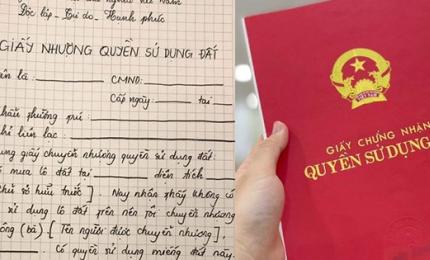 Độc lập - Tự do - Hạnh phúc
GIẤY NHƯỢNG QUYỀN SỬ DỤNG ĐẤT
là: CMND:
Cấp ngày: tại
khẩu thường trú:
chỉ liên lạc:
dung giấy chuyển nhượng quyền sử dụng đất:
mua lô đất tại diện tích
số hữu trước ] Nay nhận thấy không có
sử dụng lô đất trên nên tôi chuyển nhượng
ông (bà): [ Tên người được chuyển nhượng ],
Có quyền sử dụng miếng đất này.
VIỆT NAM
GIẤY CHỨNG NHẬN
QUYỀN SỬ DỤNG